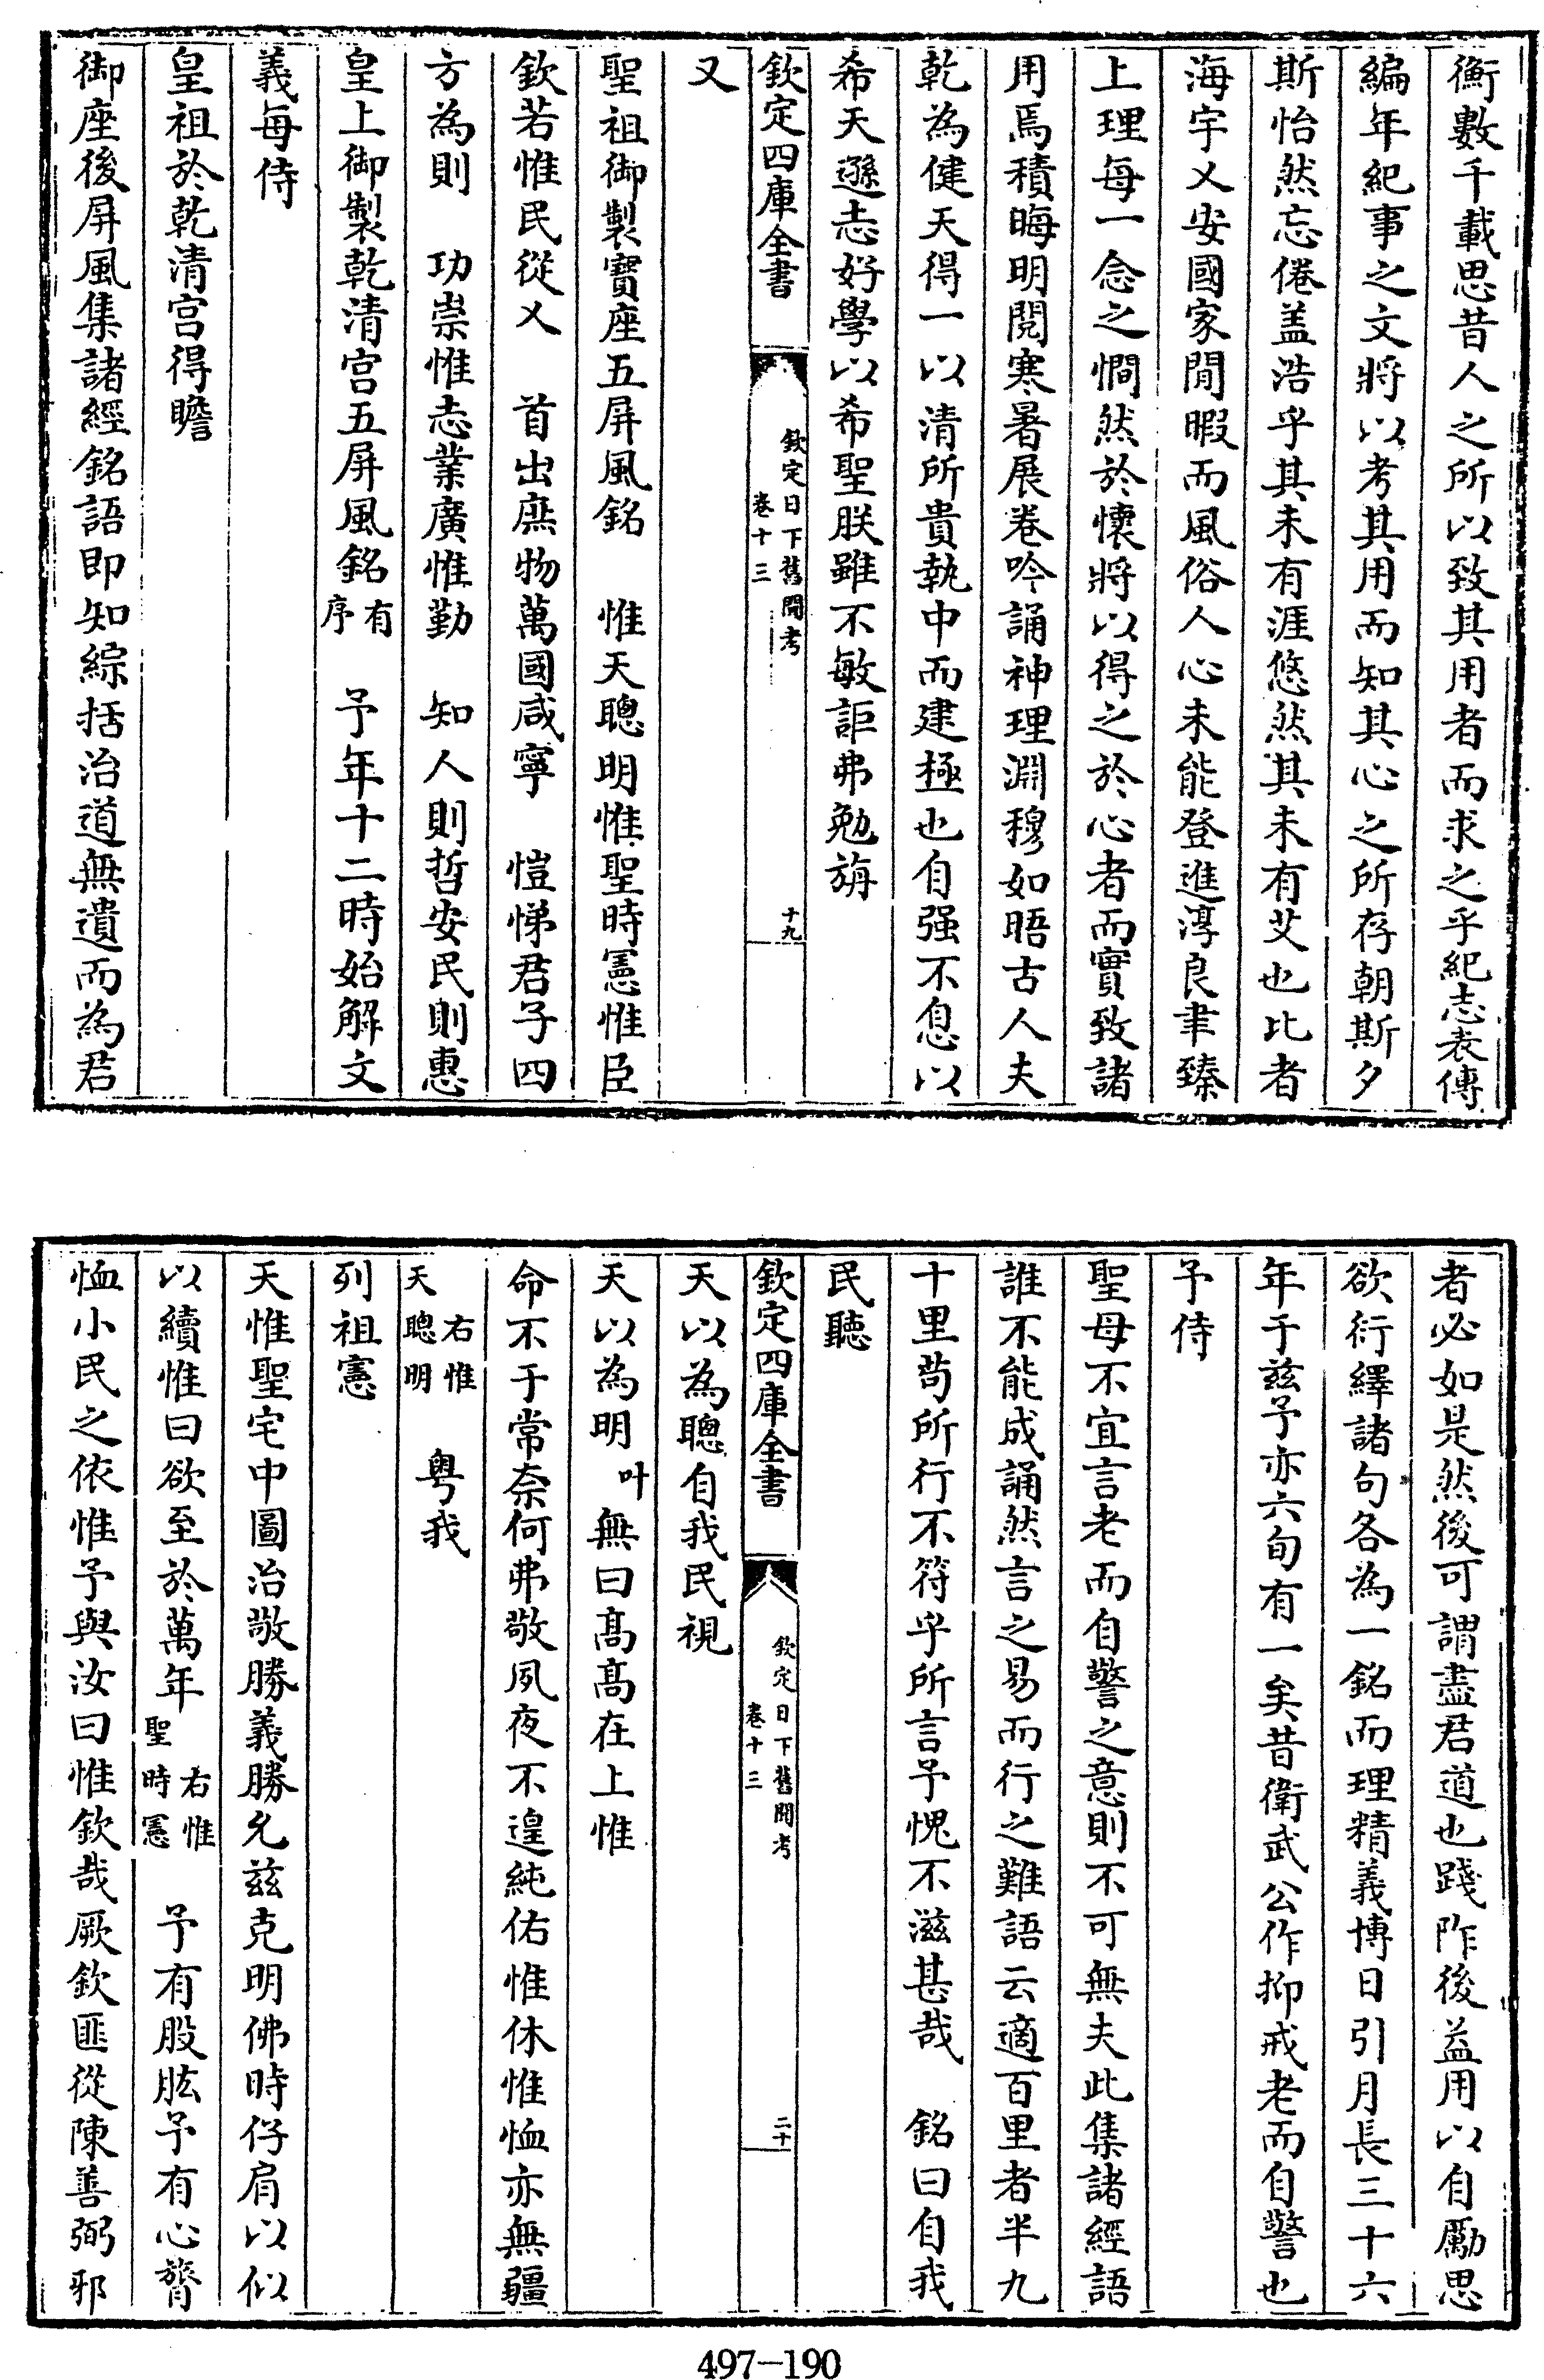 衡數千載思昔人之所以致其用者而求之乎紀志表傳
編年紀事之文將以考其用而知其心之所存朝斯夕
斯怡然忘倦盖浩乎其未有涯悠然其未有艾也比者
海宇乂安國家閒暇而風俗人心未能登進淳良聿臻
上理每一念之憪然於懷將以得之於心者而實致諸
用焉積晦明閱寒暑展卷吟誦神理淵穆如晤古人夫
乾為健天得一以清所貴執中而建極也自强不息以
希天遜志好學以希聖朕雖不敏詎弗勉旃
欽定四庫全書
欽定日下舊聞考
卷十三
十九
又
聖祖御製寳座五屏風銘　惟天聰明惟聖時憲惟臣
欽若惟民從乂　首出庶物萬國咸寧　愷悌君子四
方為則　功崇惟志業廣惟勤　知人則哲安民則惠
皇上御製乾清宫五屏風銘有序　予年十二時始解文
義每侍
皇祖於乾清宫得瞻
御座後屏風集諸經銘語即知綜括治道無遺而為君
者必如是然後可謂盡君道也踐阼後益用以自勵思
欲衍繹諸句各為一銘而理精義博日引月長三十六
年于兹予亦六旬有一矣昔衛武公作抑戒老而自警也
予侍
聖母不宜言老而自警之意則不可無夫此集諸經語
誰不能成誦然言之易而行之難語云適百里者半九
十里茍所行不符乎所言予愧不滋甚哉　銘曰自我
民聽
欽定四庫全書
欽定日下舊聞考
卷十三
二十
天以為聰自我民視
天以為明叶無曰髙髙在上惟
命不于常奈何弗敬夙夜不遑純佑惟休惟恤亦無疆
右惟
天聰明　粤我
列祖憲
天惟聖宅中圖治敬勝義勝允兹克明佛時仔肩以似
以續惟曰欲至於萬年右惟聖時憲　予有股肱予有心膂
恤小民之依惟予與汝曰惟欽哉厥欽匪從陳善弼邪
497—190